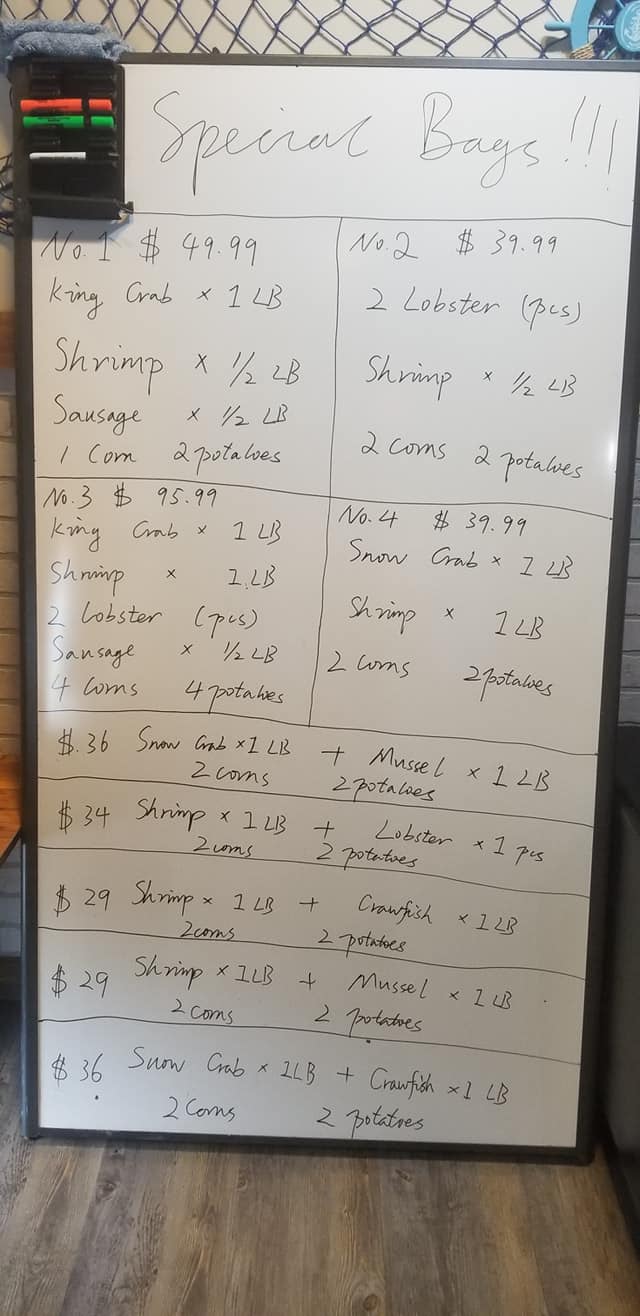 Special Bags!!!
No.1 $ 49.99
King Crab × 1 LB
Shrimp × 1/2 LB
Sausage × 1/2 LB
1 Corn 2 potatoes
No.2 $ 39.99
2 Lobster (pcs)
Shrimp × 1/2 LB
2 corns 2 potatoes
No.3 $ 95.99
King Crab × 1 LB
Shrimp × 1 LB
2 Lobster (pcs)
Sausage × 1/2 LB
4 Corns 4 potatoes
No.4 $ 39.99
Snow Crab × 1 LB
Shrimp × 1 LB
2 corns 2 potatoes
$.36 Snow Crab × 1 LB + Mussel × 1 LB
2 corns 2 potatoes
$ 34 Shrimp × 1 LB + Lobster × 1 pcs
2 corns 2 potatoes
$ 29 Shrimp × 1 LB + Crawfish × 1 LB
2 corns 2 potatoes
$ 29 Shrimp × 1 LB + Mussel × 1 LB
2 corns 2 potatoes
$ 36 Snow Crab × 1 LB + Crawfish × 1 LB
2 corns 2 potatoes